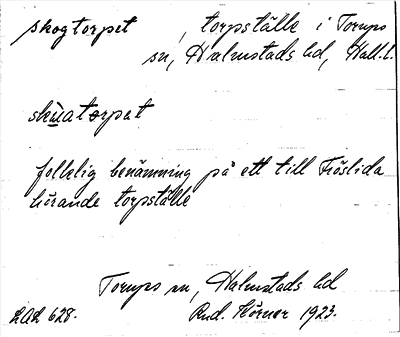 skogtorpet , torpställe i Torups
sn, Halmstads hd, Hall. l.
skùatorpet
folklig benämning på ett till Fröslida
hörande torpställe
Torups sn, Halmstads hd
LAL 628. Rud. Körner 1923.